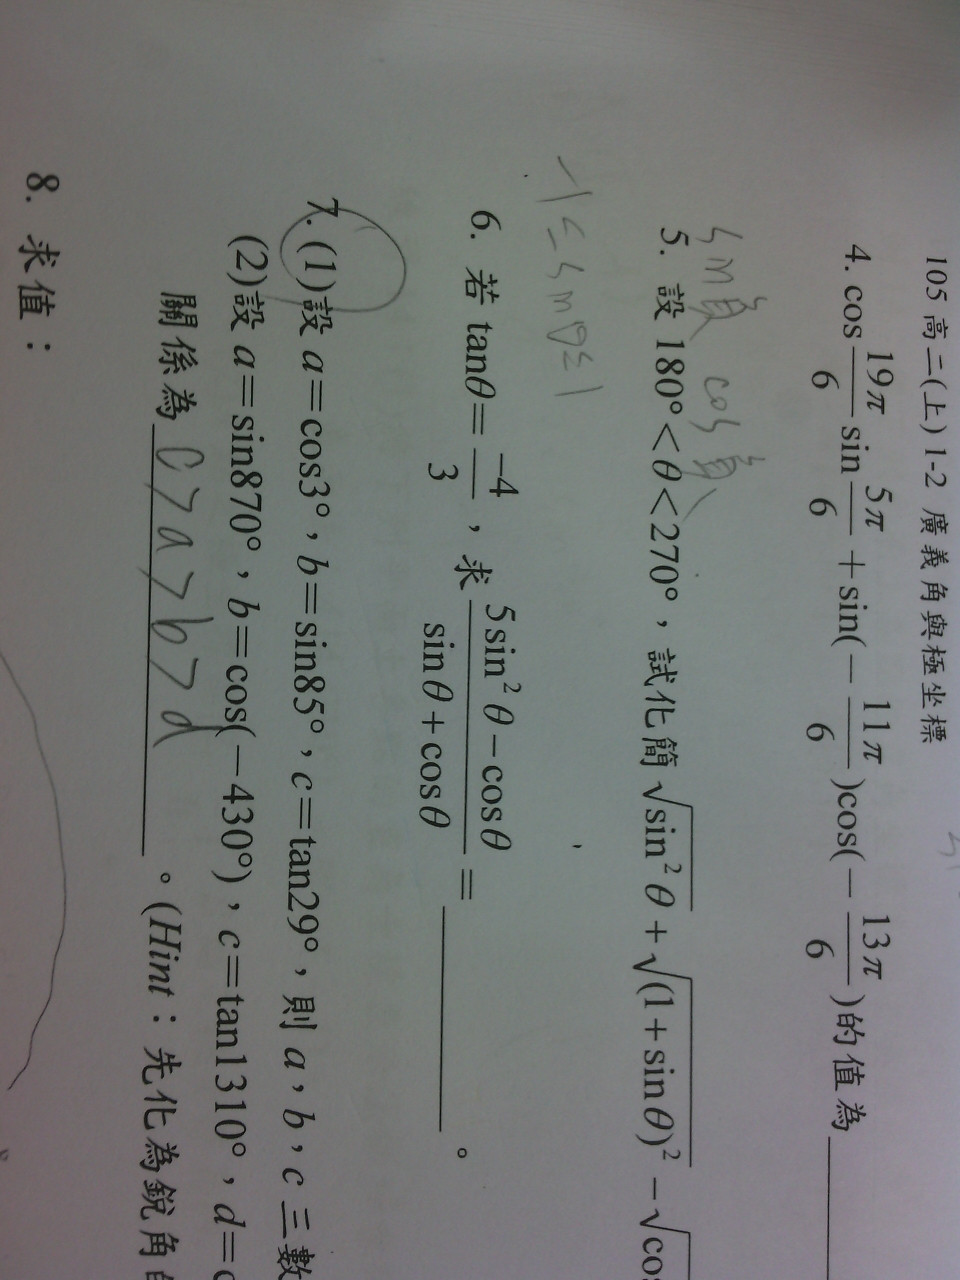 105 高二(上) 1-2 廣義角與極坐標
4. cos 19π/6 sin 5π/6 + sin(−11π/6)cos(−13π/6)的值為
sin負 cos負
5. 設 180°<θ<270°，試化簡 √sin²θ + √(1+sinθ)² − √cos
−1 ≤ sinθ ≤ 1
6. 若 tanθ = −4/3，求 (5sin²θ−cosθ)/(sinθ+cosθ) = ＿＿＿。
7. (1)設 a=cos3°，b=sin85°，c=tan29°，則 a，b，c 三數
(2)設 a=sin870°，b=cos(−430°)，c=tan1310°，d=c
關係為 c>a>b>d 。(Hint：先化為銳角的
8. 求值：